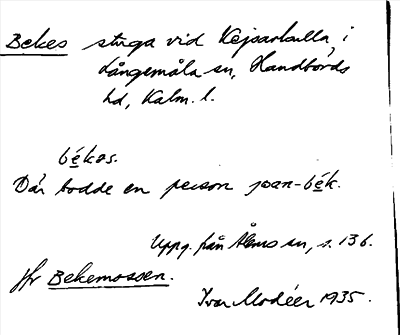 Bekes stuga vid Kejsarkulla, i
Långemåla sn, Handbörds
hd, Kalm. l.
békəs.
Där bodde en person joan-bék.
Uppg. från Ålems sn, s. 136.
Jfr Bekemossen.
Ivar Modéer 1935.